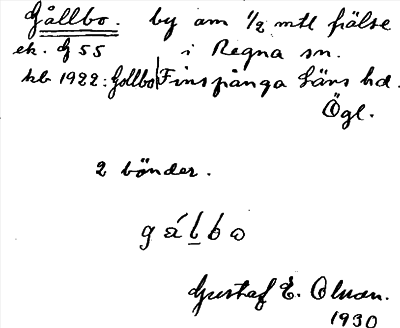 Gållbo. by om 1/2 mtl frälse
ek. G 55 i Regna sn.
kb 1922: Gollbo Finspånga Läns hd.
Ögl.
2 bönder.
gålbo
Gustaf E. Olson.
1930